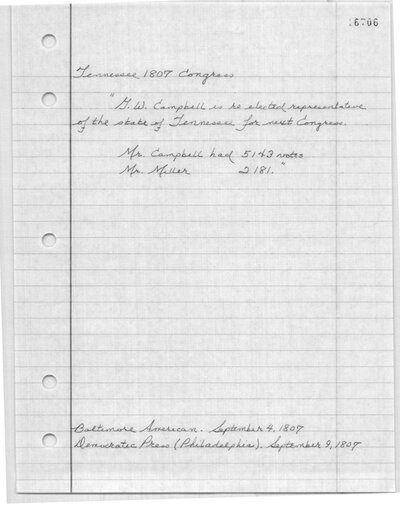 16706
Tennessee 1807 Congress
"G. W. Campbell is re elected representative
of the state of Tennessee for next Congress.
Mr. Campbell had 5143 votes
Mr. Miller 2181."
Baltimore American. September 4, 1807
Democratic Press (Philadelphia). September 9, 1807